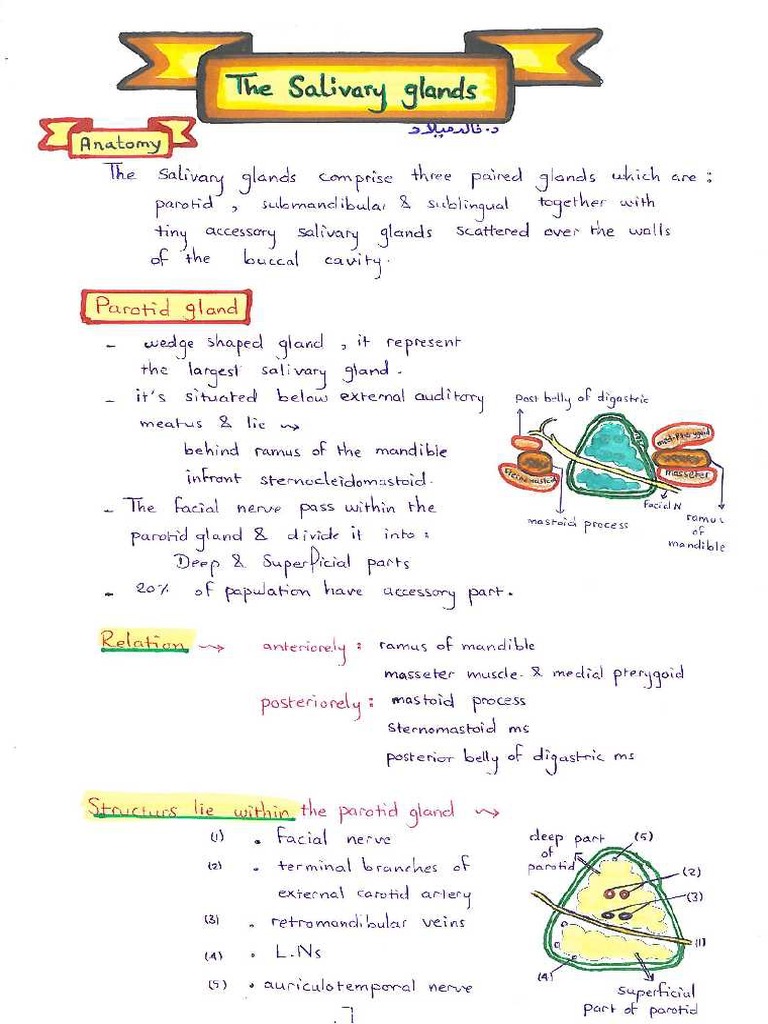 The Salivary glands
د. خالد ميلاد
Anatomy
The Salivary glands comprise three paired glands which are :
parotid , submandibular & sublingual together with
tiny accessory salivary glands scattered over the walls
of the buccal cavity.
Parotid gland
- wedge shaped gland , it represent
the largest salivary gland .
- it's situated below external auditory
meatus & lie
behind ramus of the mandible
infront sternocleidomastoid.
- The facial nerve pass within the
parotid gland & divide it into :
Deep & Superficial parts
- 20% of population have accessory part .
post belly of digastric
med. pterygoid
masseter
sternomastoid
Facial N
mastoid process
ramus
of
mandible
Relation anteriorely : ramus of mandible
masseter muscle. & medial pterygoid
posteriorely : mastoid process
sternomastoid ms
posterior belly of digastric ms
Structurs lie within the parotid gland
(1) . facial nerve
(2) . terminal branches of
external carotid artery
(3) . retromandibular veins
(4) . L.Ns
(5) . auriculotemporal nerve
deep part
of
parotid
(5)
(2)
(3)
(1)
(4)
superficial
part of parotid